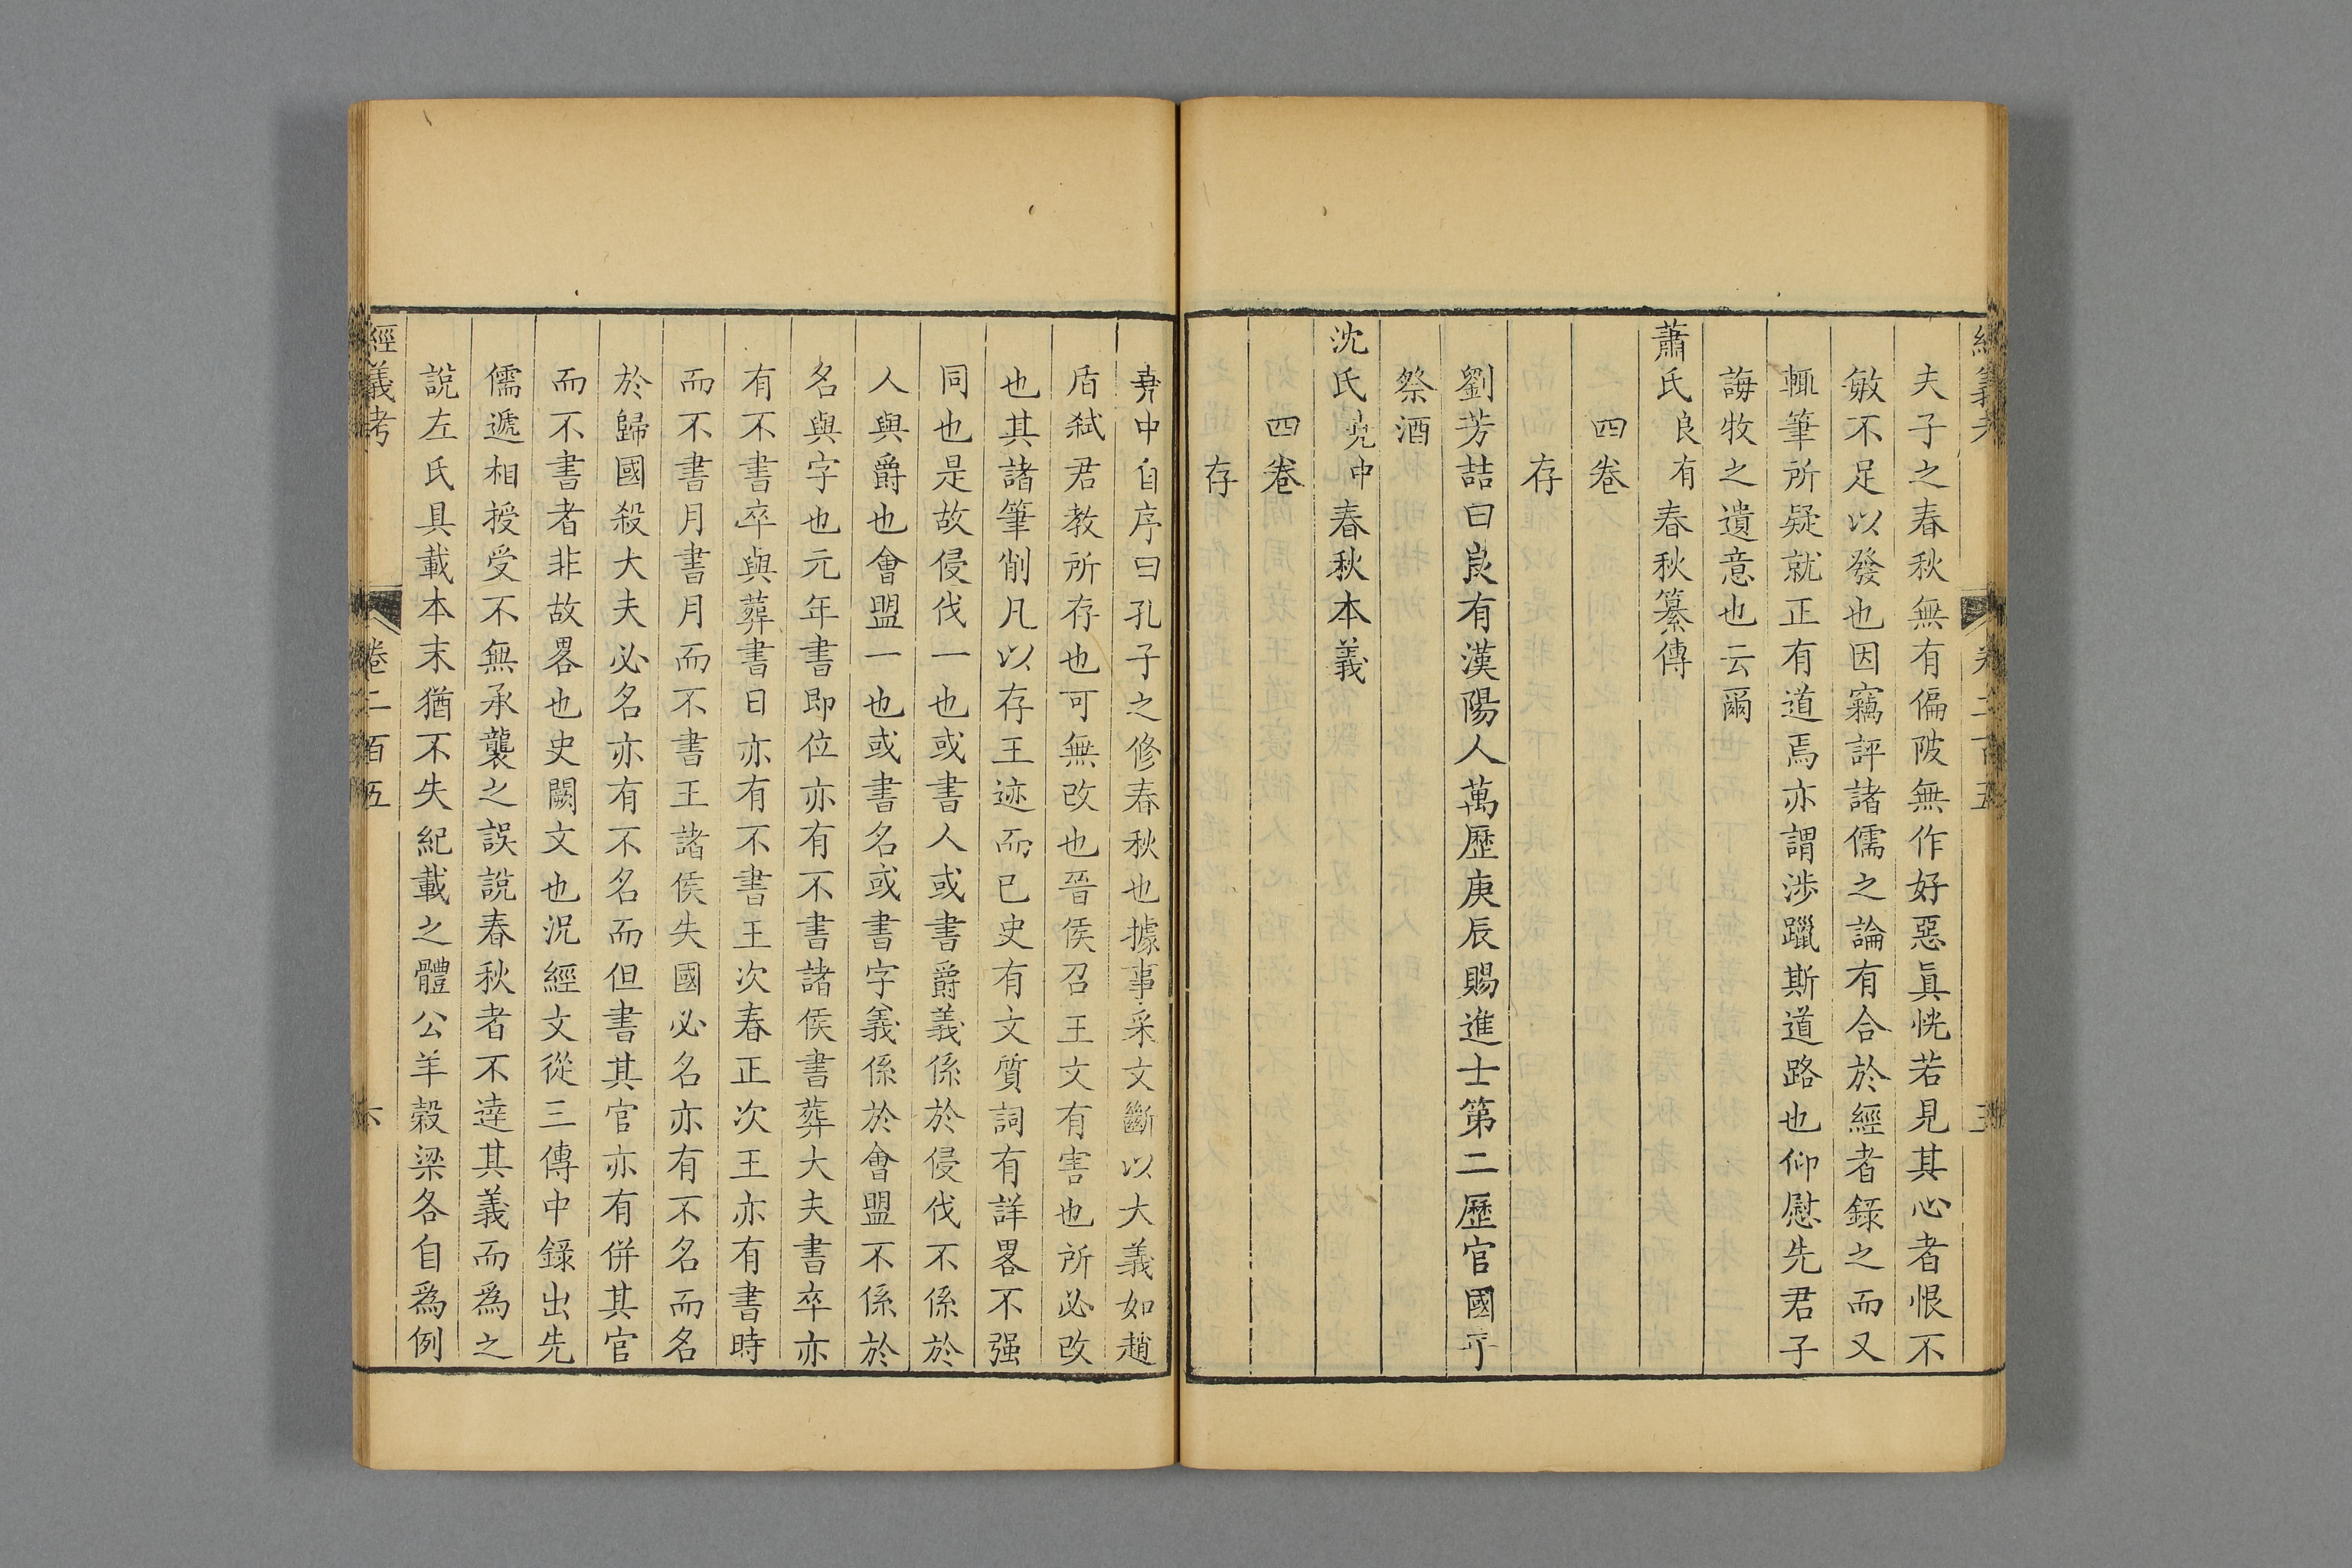 夫子之春秋無有偏陂無作好惡眞恍若見其心者恨不
敏不足以發也因竊評諸儒之論有合於經者錄之而又
輒筆所疑就正有道焉亦謂涉躐斯道路也仰慰先君子
誨牧之遺意也云爾
蕭氏良有春秋纂傳
四卷
存
劉芳喆曰良有漢陽人萬歷庚辰賜進士第二歷官國子
祭酒
沈氏堯中春秋本義
四卷
存
堯中自序曰孔子之修春秋也據事采文斷以大義如趙
盾弑君教所存也可無改也晉侯召王文有害也所必改
也其諸筆削凡以存王迹而已史有文質詞有詳畧不强
同也是故侵伐一也或書人或書爵義係於侵伐不係於
人與爵也會盟一也或書名或書字義係於會盟不係於
名與字也元年書即位亦有不書諸侯書葬大夫書卒亦
有不書卒與葬書日亦有不書王次春正次王亦有書時
而不書月書月而不書王諸侯失國必名亦有不名而名
於歸國殺大夫必名亦有不名而但書其官亦有併其官
而不書者非故畧也史闕文也况經文從三傳中錄出先
儒遞相授受不無承襲之誤說春秋者不達其義而爲之
說左氏具載本末猶不失紀載之體公羊穀梁各自爲例
經義考
卷二百五
六